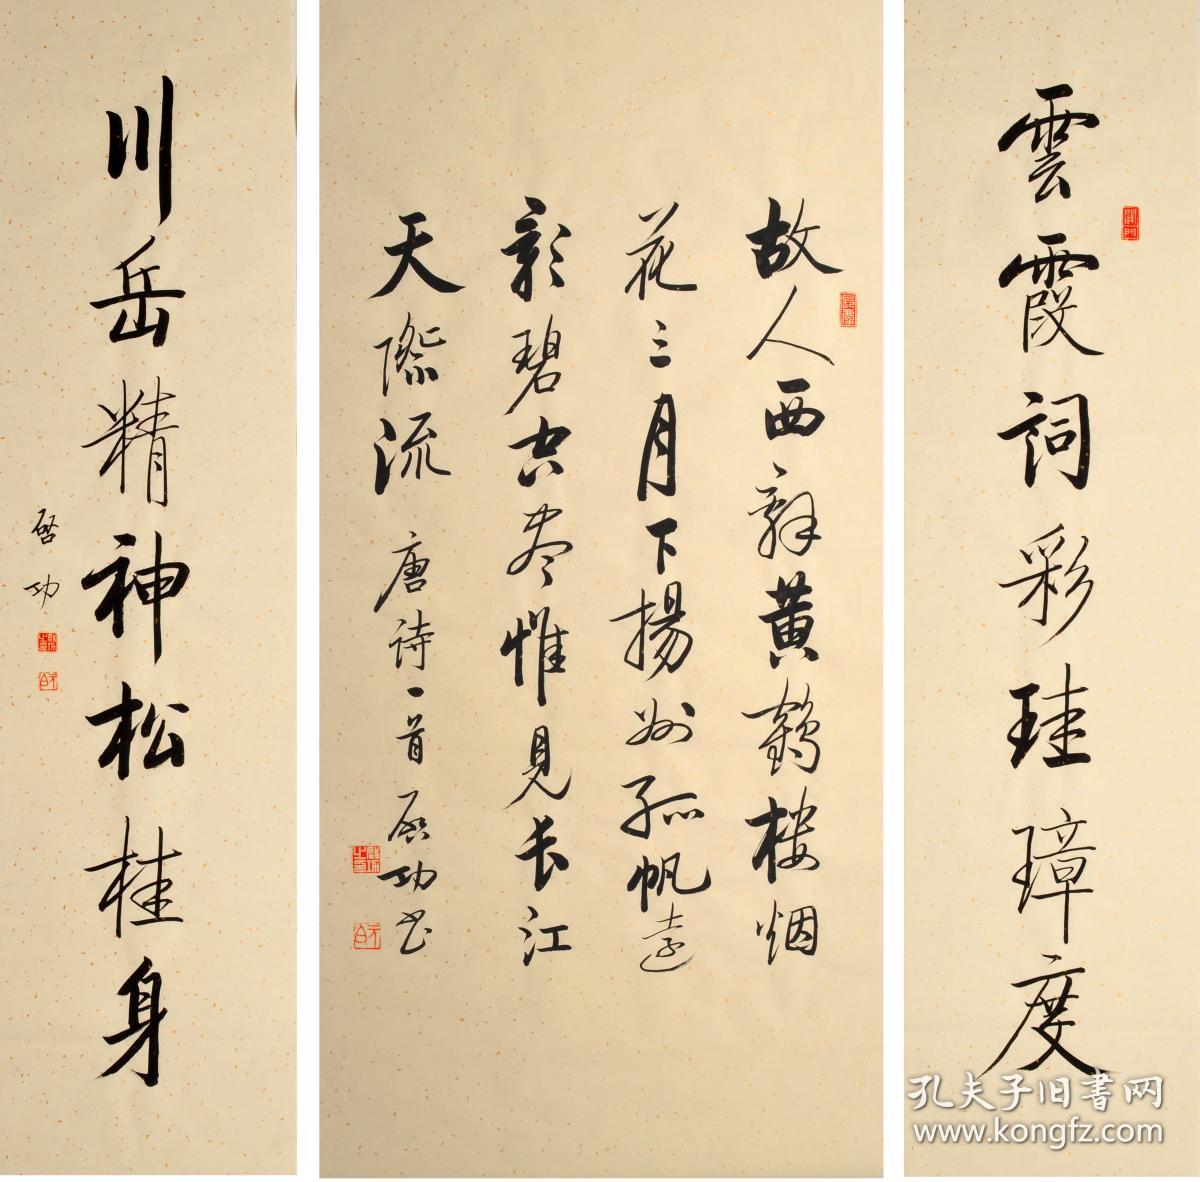 雲霞詞彩珪璋度
故人西辞黄鹤楼烟
花三月下揚州孤帆遠
影碧空尽惟見长江
天際流 唐诗一首 启功书
川岳精神松桂身
啓功
孔夫子旧書网
www.kongfz.com